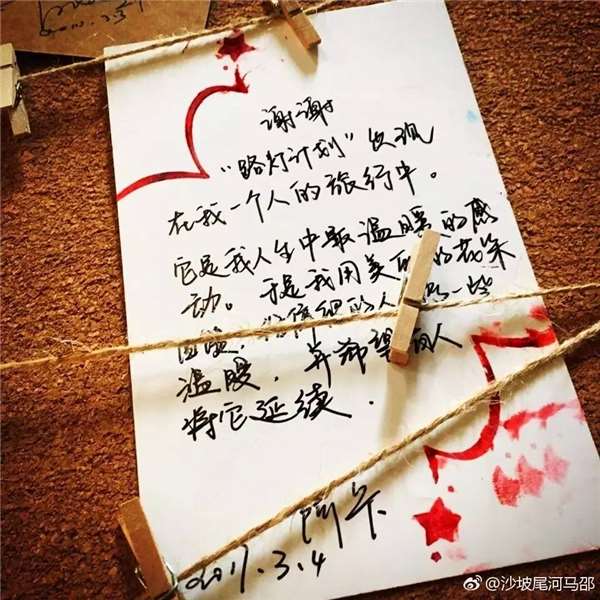 谢谢
“路灯计划”出现
在我一个人的旅行中。
它是我人生中最温暖的感
动。于是我用美丽的花朵
回馈,
的人 一些
温暖,并希望 人
将它延续.
阿卡
2017.3.4
@沙坡尾河马邵